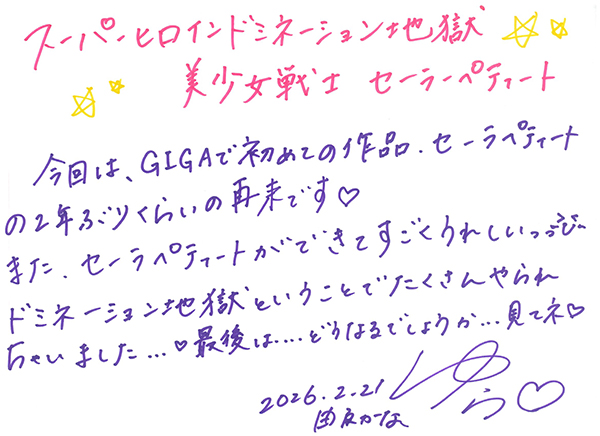 スーパーヒロインドミネーション地獄
美少女戦士 セーラーペティート
今回は、GIGAで初めての作品.セーラペティート
の2年ぶりくらいの再来です♡
また、セーラペティートができてすごくうれしいっっ
ドミネーション地獄ということでたくさんやられ
ちゃいました…♡最後は….どうなるでしょうか…見てネ♡
2026.2.21
由良かな
ゆら♡